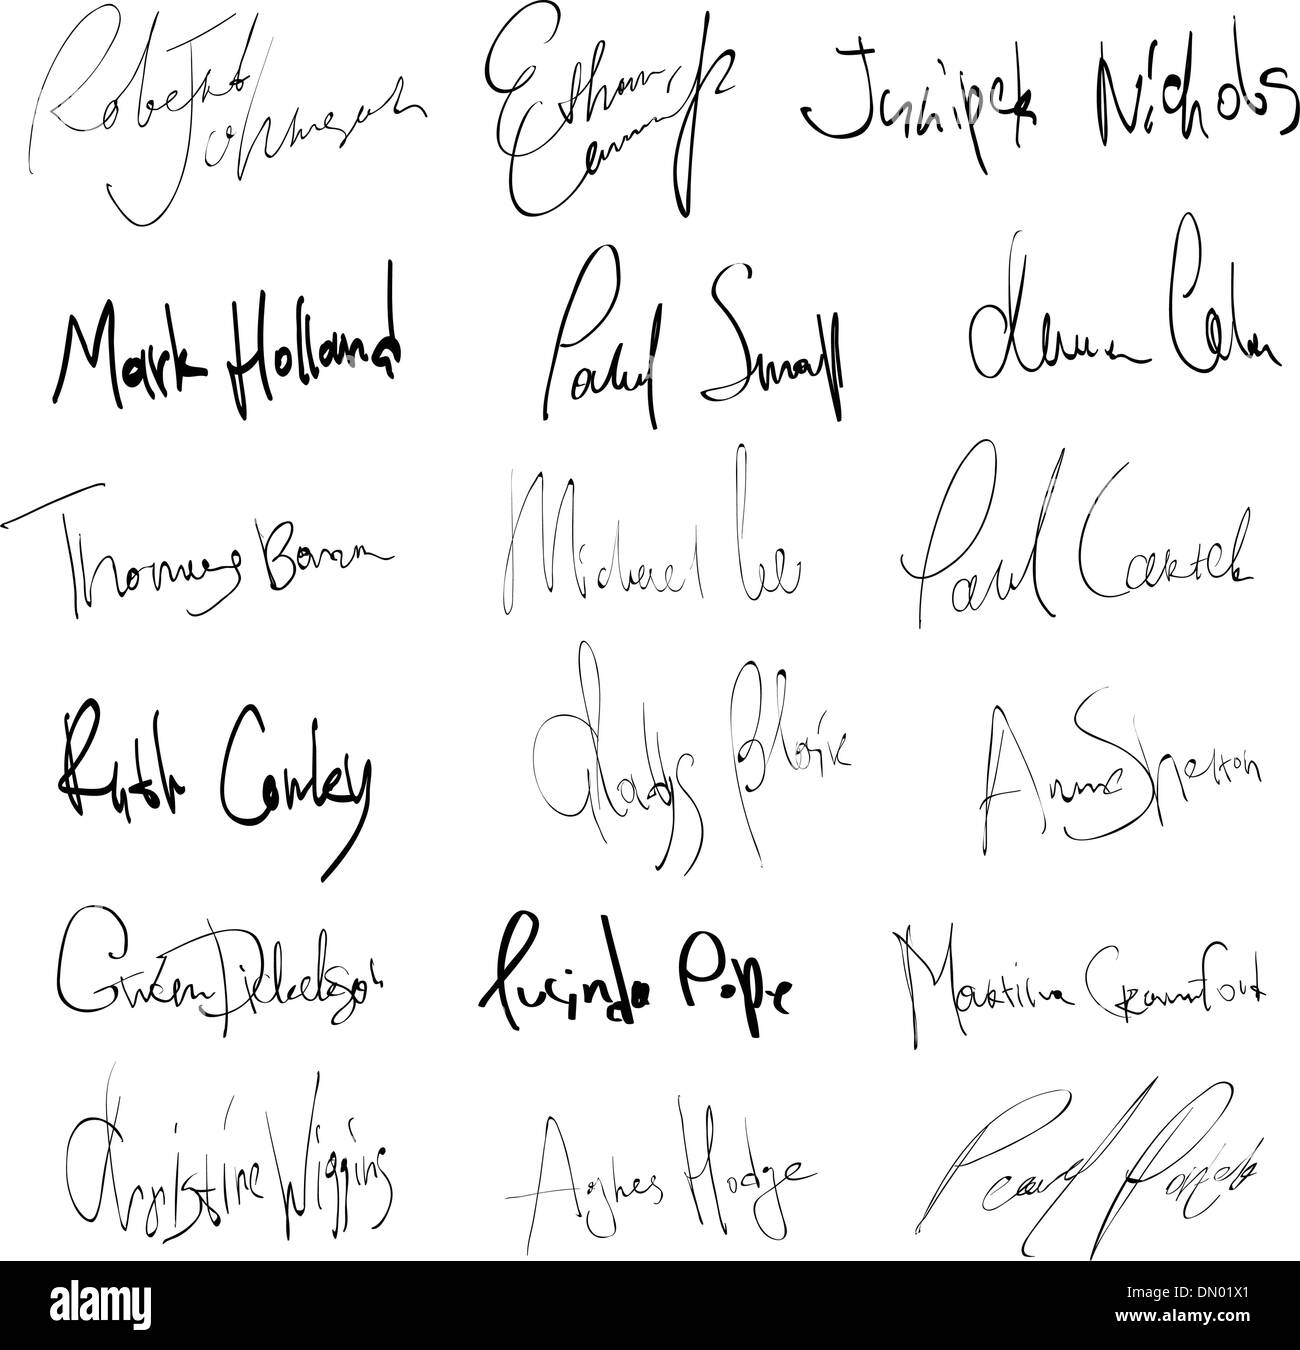 Robert Johnson
Ethan
Juniper Nichols
Mark Holland
Paul Small
Thomas Baron
Michael Lee
Paul Carrick
Ruth Conley
Gladys Blair
Anne Shelton
Gwen Dickelson
Lucinda Pope
Martina Crawford
Christine Wiggins
Agnes Hodge
Pearl
alamy stock photo
a
alamy
DN01X1
www.alamy.com